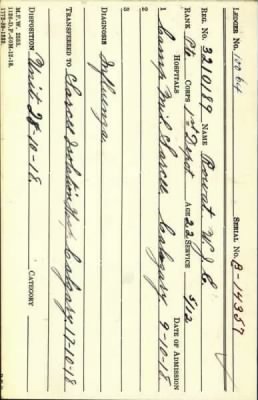 LEDGER No. 10064 SERIAL No. B-14357
REG. No. 3210189 NAME Rowat W. J. C.
RANK Pte CORPS 1st Depot AGE 22 SERVICE 5/12
HOSPITALS DATE OF ADMISSION
1 Camp Mil Sarcee Calgary 9-10-18
2
3
DIAGNOSIS Influenza
TRANSFERRED TO Sarcee Isolation Hosp Calgary 17-10-18
DISPOSITION Unit 28-10-18 CATEGORY
M.F.W. 2553.
1772-39-1352.